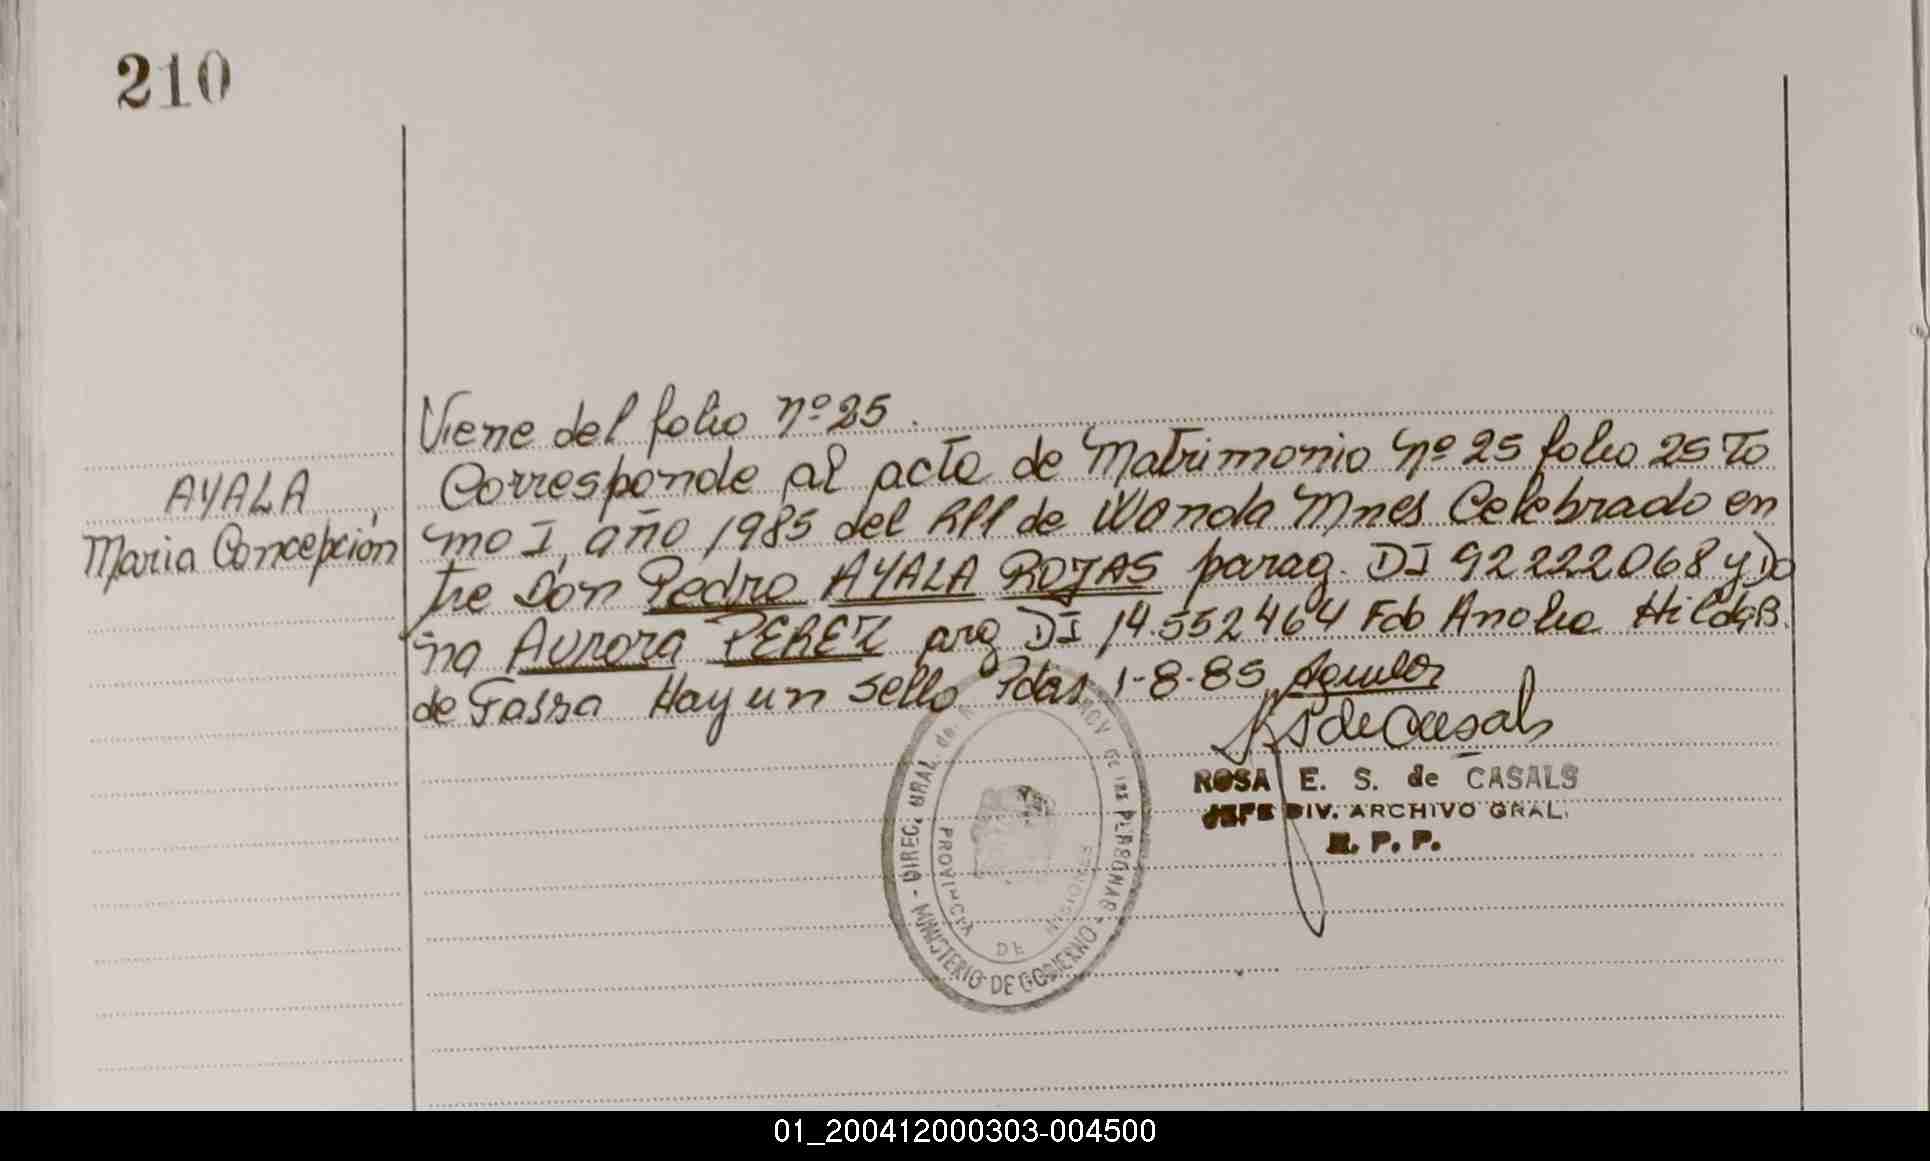 210
Viene del folio nº 25.
AYALA,
Maria Concepción
Corresponde al acta de Matrimonio nº 25 folio 25 To
mo I, año 1985 del RPP de Wanda Mnes Celebrado en
tre Don Pedro AYALA ROJAS parag. DI 92222068 y Do
ña Aurora PEREZ arg DI 14.552464 Fdo Analia Hilda B.
de Fassa Hay un sello Pdas 1-8-85 Aguilar
ROSA E. S. de CASALS
JEFE DIV. ARCHIVO GRAL.
R. P. P.
MINISTERIO DE GOBIERNO - DIREC. GRAL. de las PERSONAS
PROVINCIA DE MISIONES
01_200412000303-004500